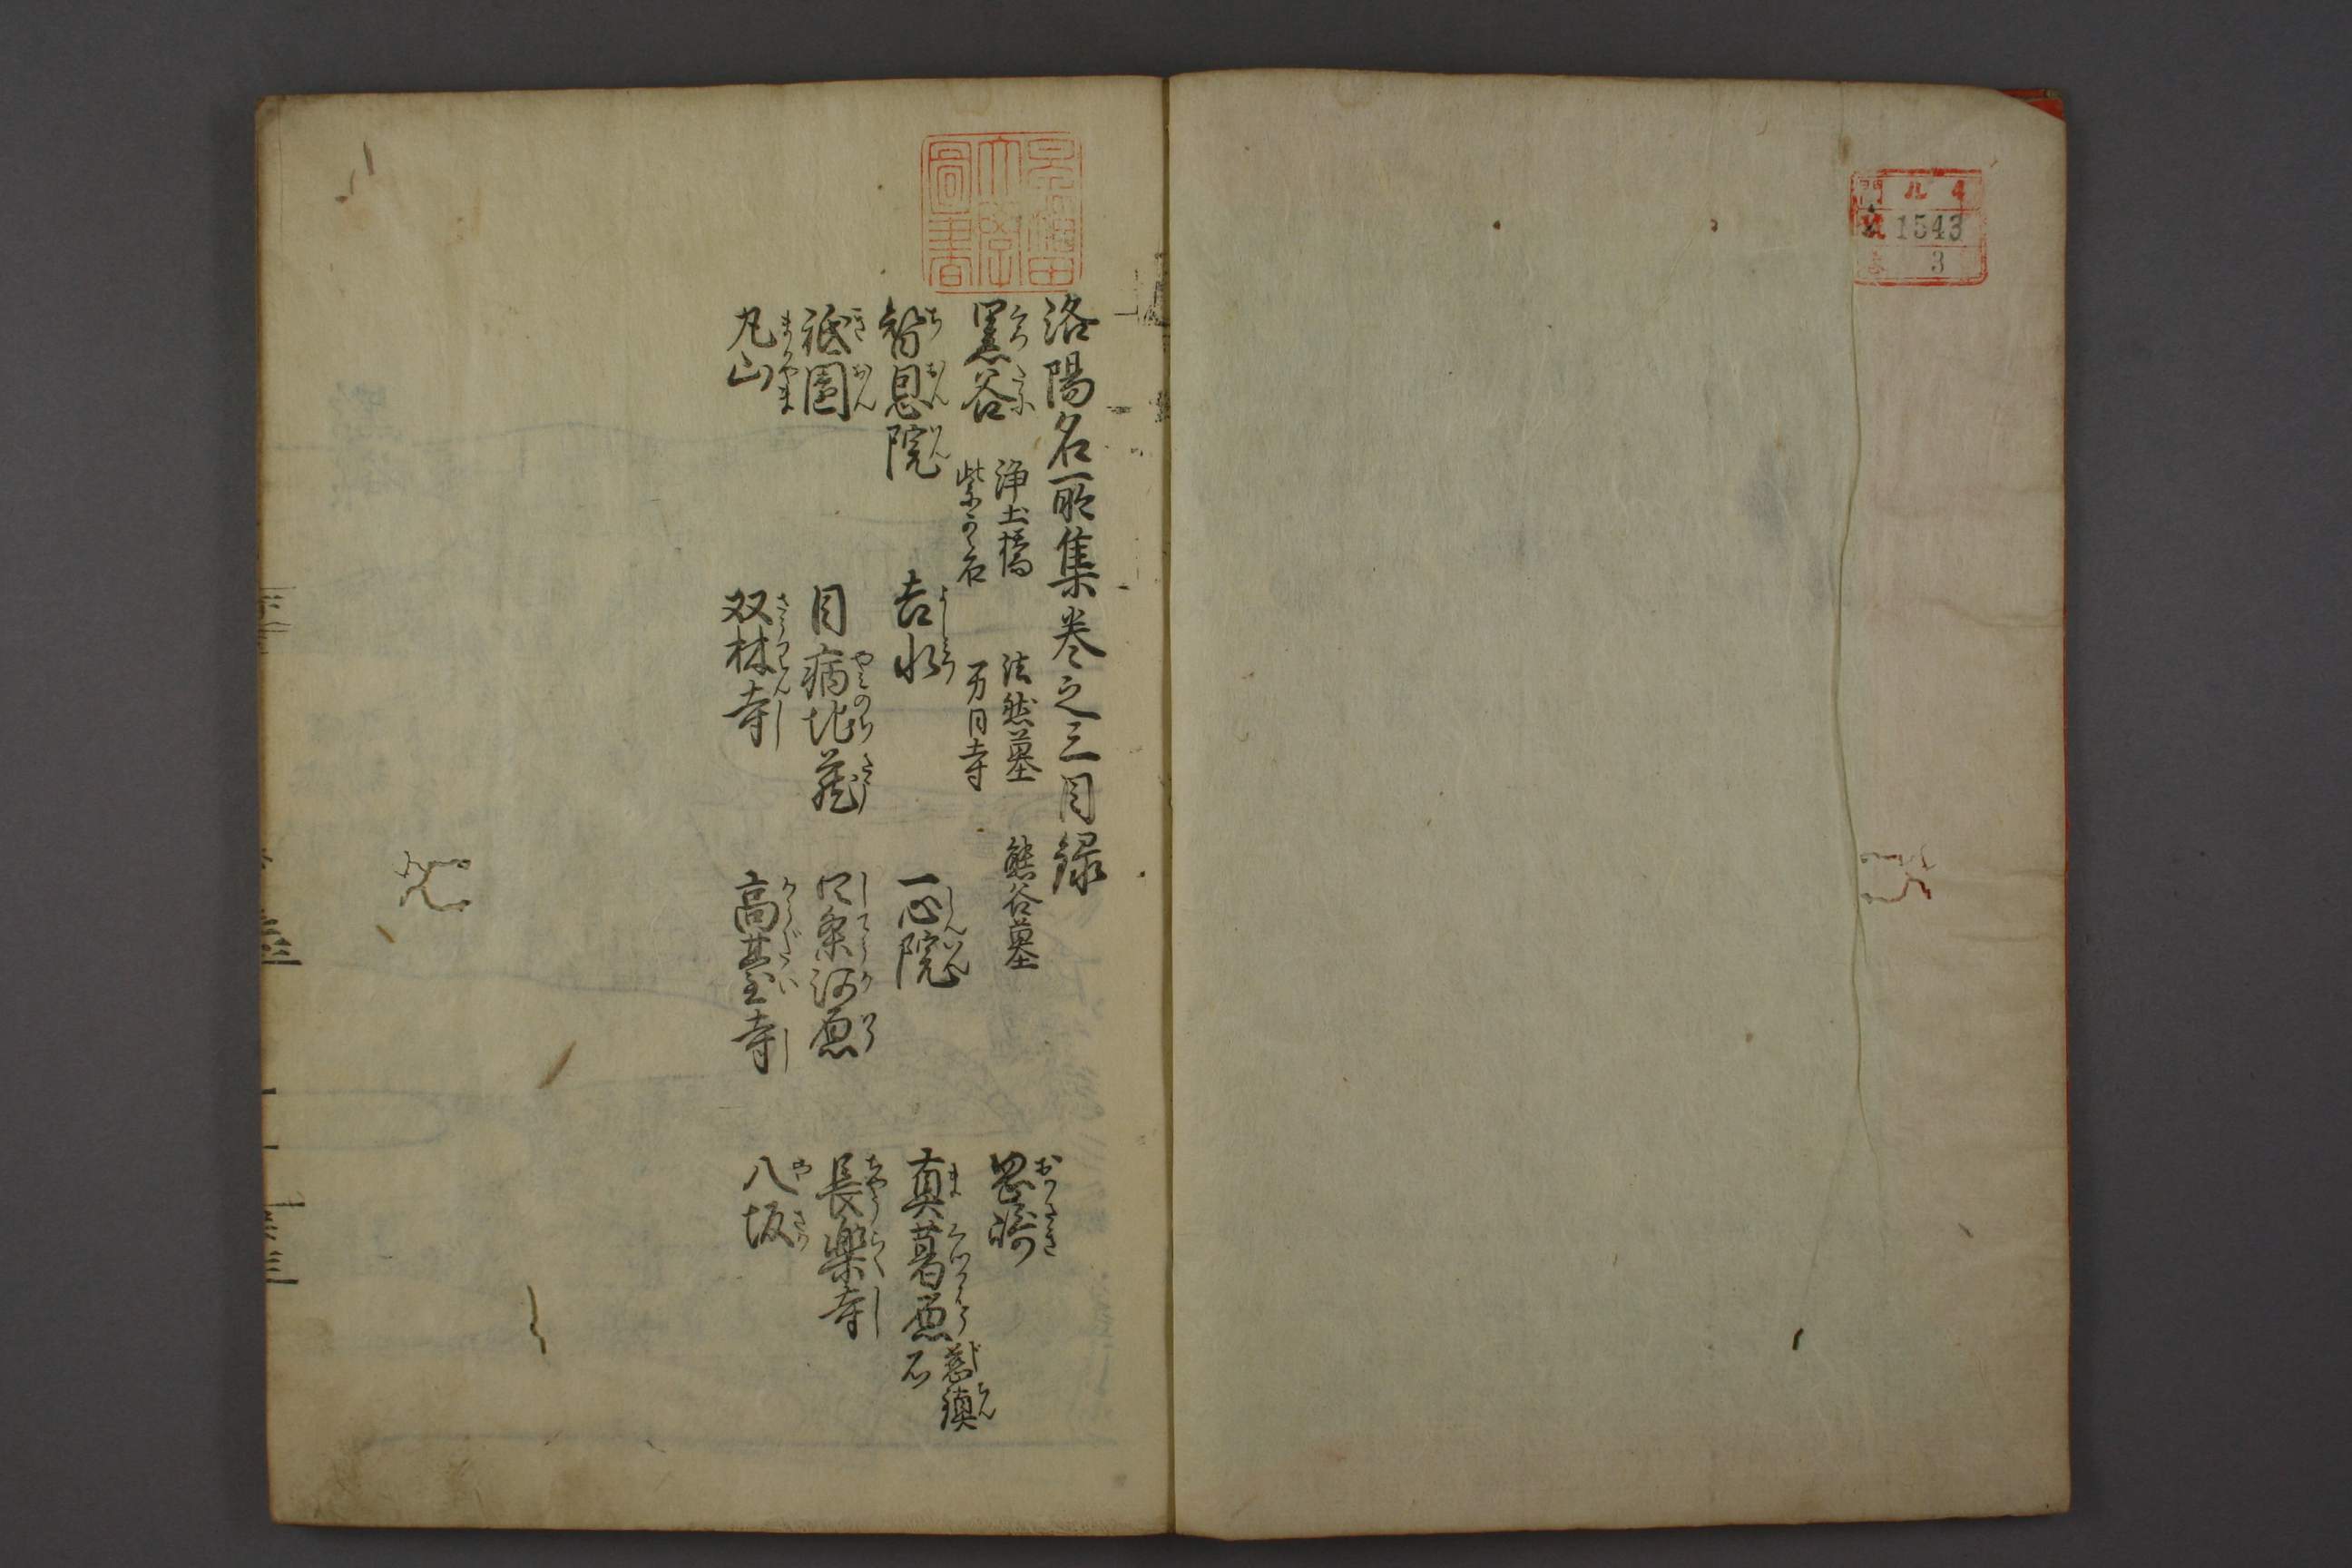 門 ル 4
號 1543
巻 3
早稲田大學圖書
洛陽名所集巻之三目録
黒谷 浄土橋 法然墓 熊谷墓 岡崎
紫雲石 万日寺
智恩院 吉水 一心院 真葛原 慈鎮石
祇園 目病地蔵 四条河原 長楽寺
丸山 双林寺 高䑓寺 八坂